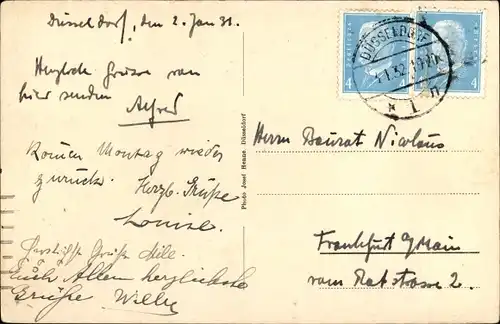 Düsseldorf, den 2. Jan 31.
Herzliche Grüsse von
hier senden
Alfred
Komme Montag wieder
zurück. Herzl. Grüße
Louise.
Herzlichste Grüße
Euch Allen herzlichste
Grüße Willy
Photo Josef Heane Düsseldorf
DÜSSELDORF
1.32
1
4
4
Herrn Baurat Nicolaus
Frankfurt a/Main
vom Ratstrasse 2.